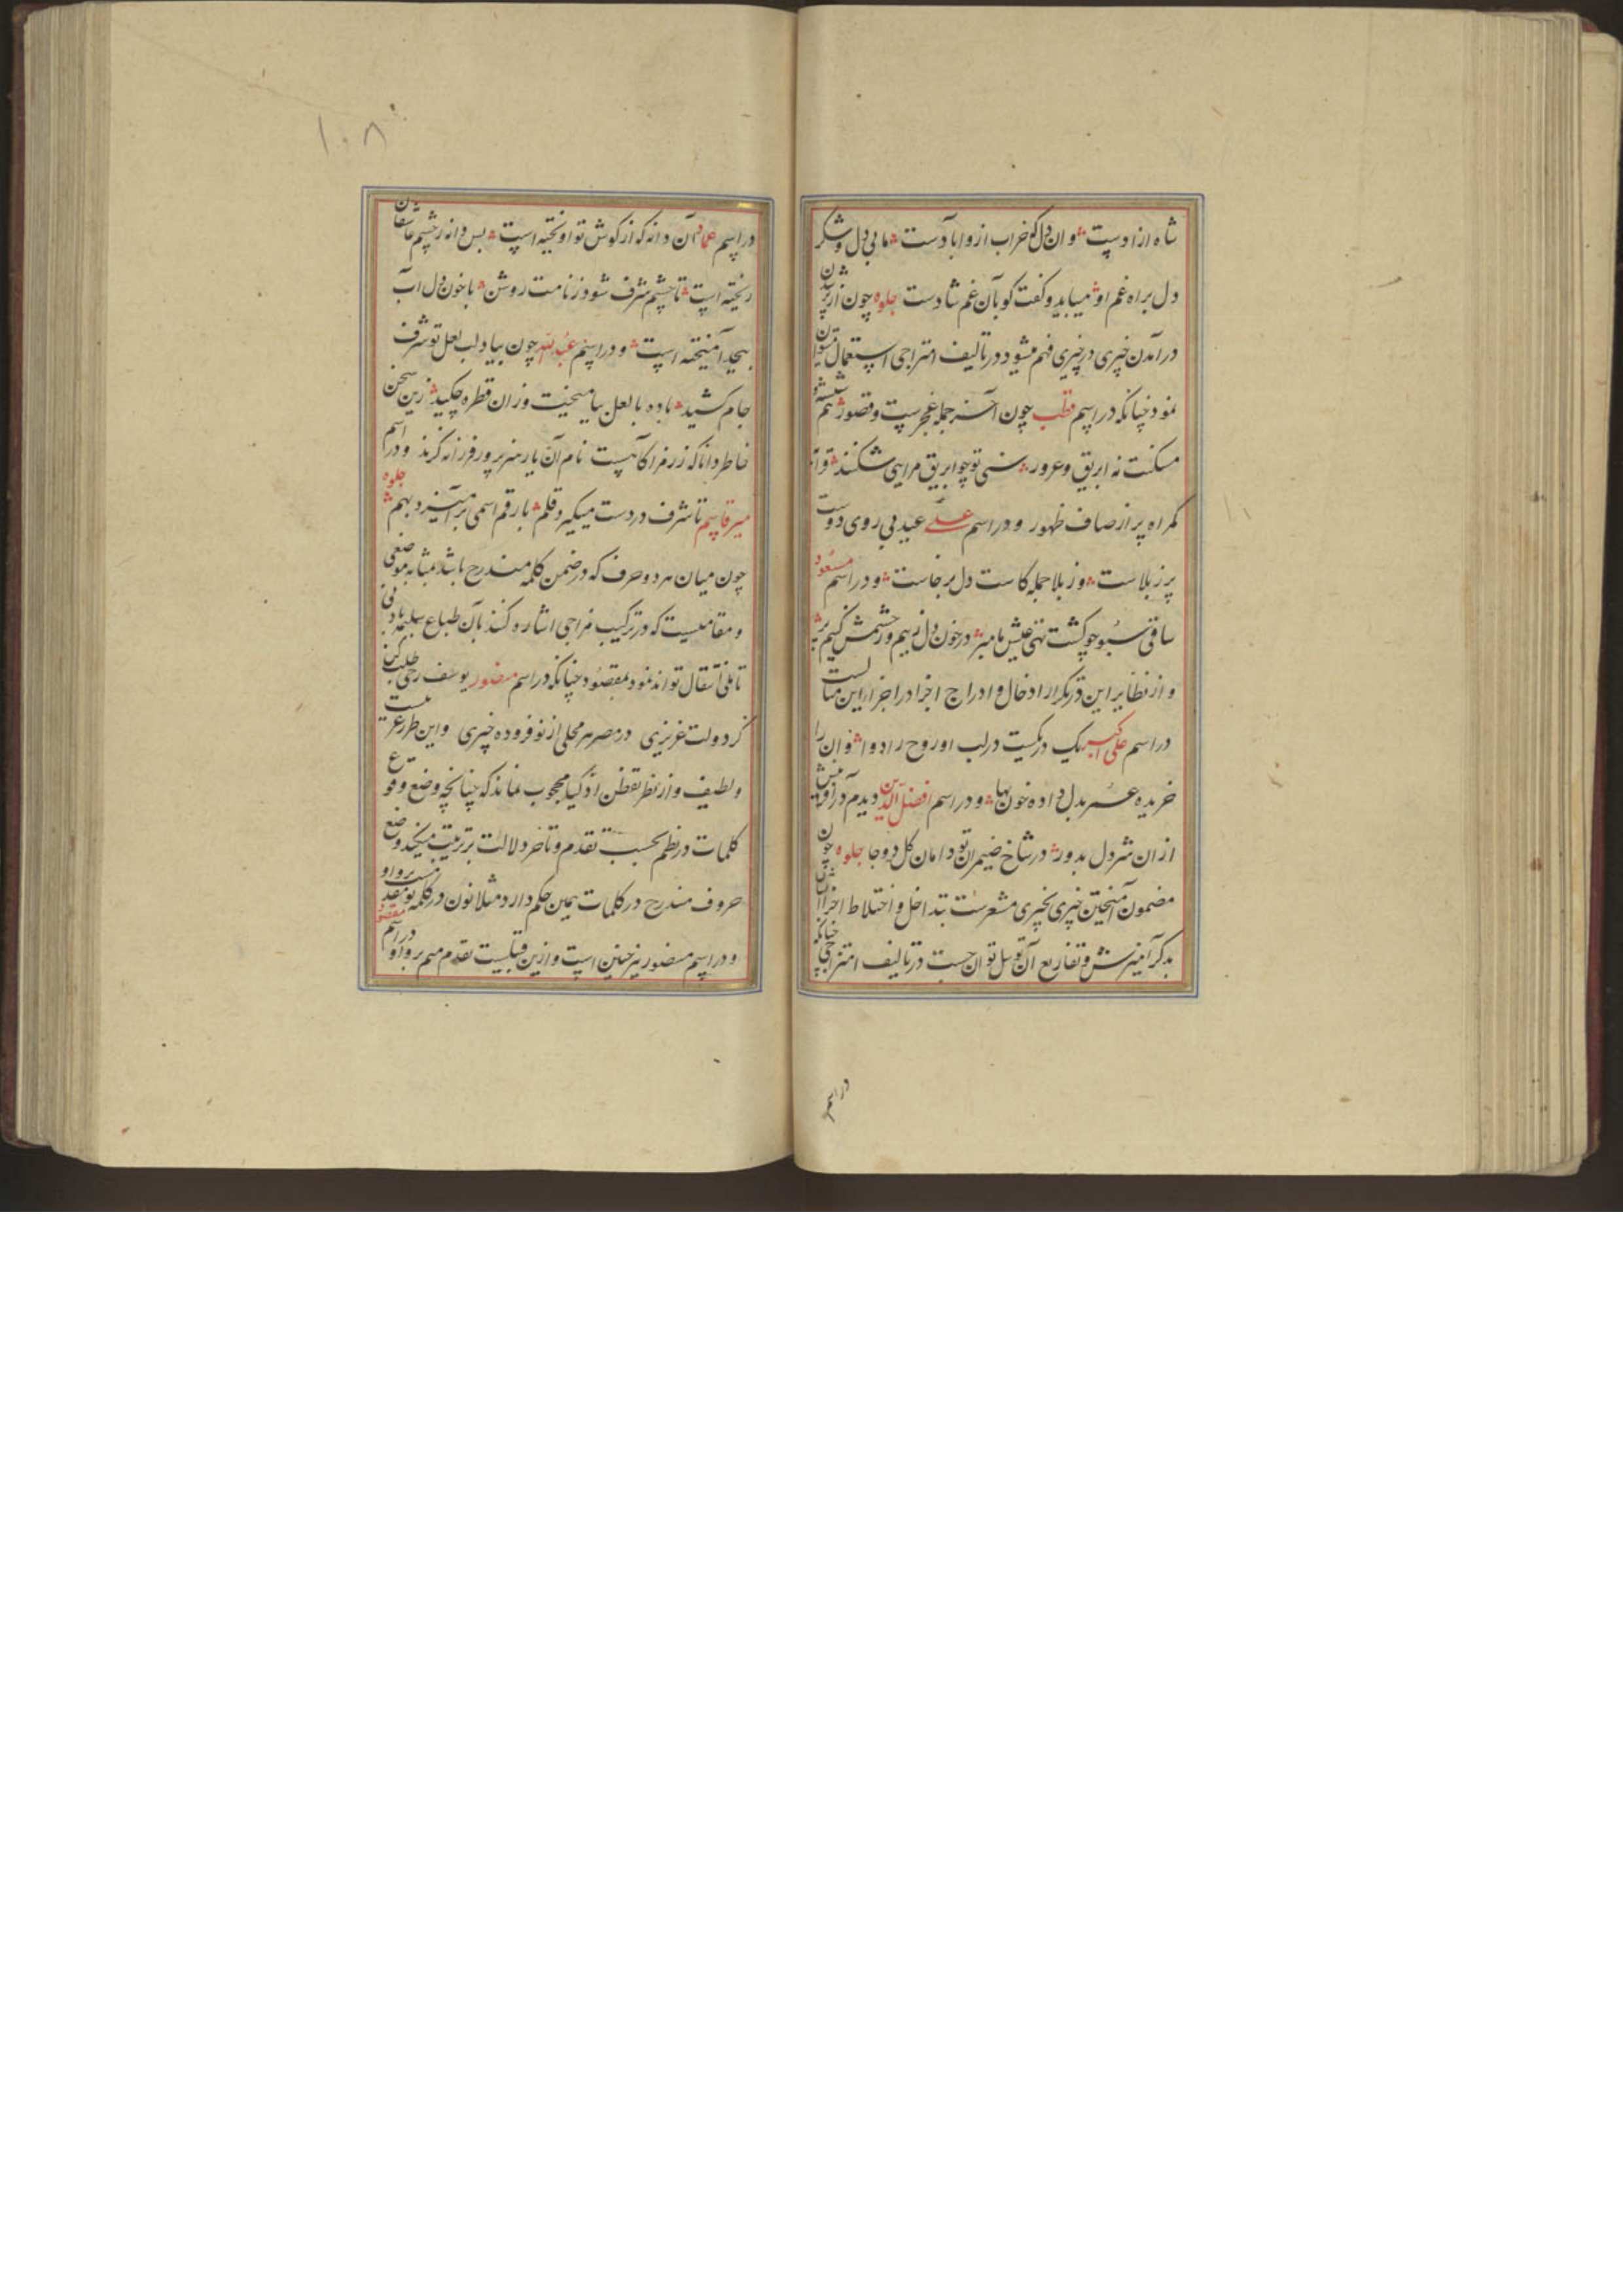 شاه ازادست وان دل که خراب ازو ابادست ما بی دل و شکر
دل براه غم او میباید و گفت کو بآن غم شادست جلوه چون از
درآمدن چیزی در چیزی فهم میشود در تالیف امتزاجی استعمال توان
نمود چنانکه در اسم قطب چون آخر جمله عجزست و قصور هم
مسکنت نه ابریق و غرور سنی تو چو ابریق مرا می شکند
کمراه پر از صاف طهور و در اسم علی عید بی روی دوست
پر ز بلاست وز بلا جمله کاست دل برجاست و در اسم مسعود
ساقی سبو چو کشت تهی عیش ما مبر در خون دل زبیم و ز چشمش کنیم پر
و از نظایر این در تکرار ادخال و ادراج اجزا در اجزا این
در اسم علی اکبر یک در یکیست در لب او روح را دوا وان را
خریده عمر بدل داده خون بها و در اسم افضل الدین دیدم در
ازان شر دل بدور در شاخ ضیمران تو دامان کل دو جا جلوه چون
مضمون آمیختن چیزی بچیزی مشعرست بتداخل و اختلاط اجزا
بذکر آمیزش و تفاریع آن توسل توان جست در تالیف امتزاجی چنانکه
در اسم
١٠٨
در اسم عماد آن دانه که از کوش تو اویخته است بس دانه ز چشم عاشقان
ریخته است تا چشم شرف شود ز نامت روشن با خون دل آب
بیحد آمیخته است و در اسم عبدالله چون بیاد لب لعل تو شرف
جام کشید باده با لعل بیامیخت وزان قطره چکید زین سخن
خاطر دانا که ز رمز آکاهست نام آن یار هنرپرور فرزانه کزید و در اسم
میر قاسم تا شرف در دست میکیرد قلم با رقم اسمی بر آمیزد بهم جلوه
چون میان هر دو حرف که در ضمن کلمه مندرج باشد بمثابه موضعی
و مقامیست که در ترکیب مزاجی اشاره کنند بآن طباع سلیمه بادنی
تاملی انتقال تواند نمود بمقصود چنانکه در اسم منصور یوسف رخی طلب کن
کر دولت عزیزی در مصر هر محلی از نو فزوده چیزی و این طرز غریبست
و لطیف و از نظر تفطن اذکیا محجوب نماند که چنانچه وضع وقوع
کلمات در نظم بحسب تقدم و تاخر دلالت بر ترتیب میکند وضع
حروف مندرج در کلمات همین حکم دارد مثلا نون در کلمه نو مقدمست بر واو
و در اسم منصور نیز چنین است و ازین قبیلست تقدم میم بر واو در اسم مقصود